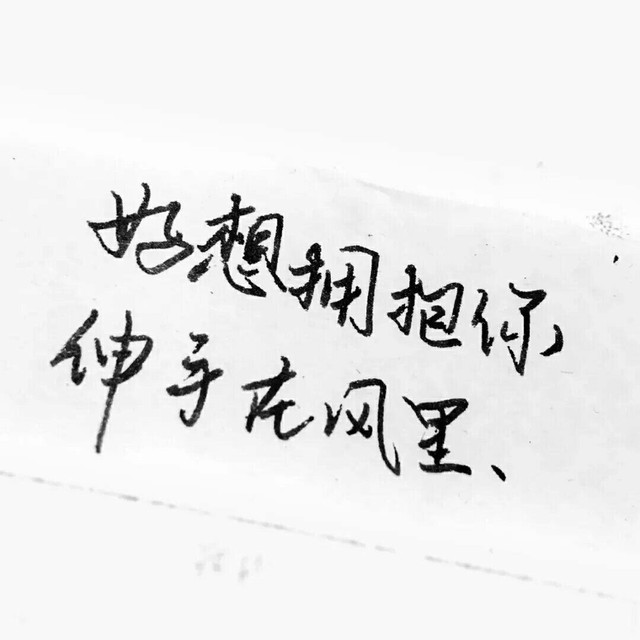 好想拥抱你,
伸手在风里、